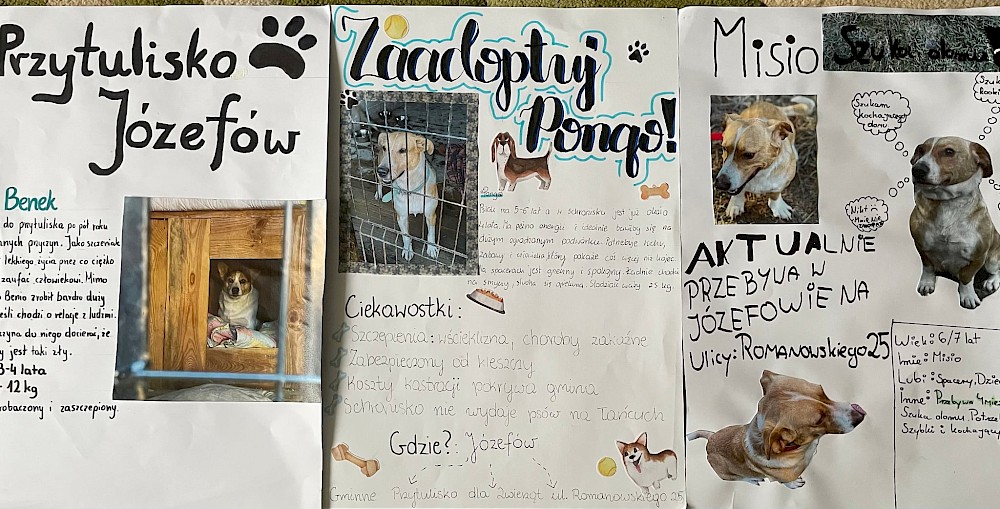 Przytulisko
Józefów
Benek
do przytuliska po pół roku
anych przyczyn. Jako szczeniak
lekkiego życia przez co ciężko
zaufać człowiekowi. Mimo
Benio zrobił bardzo duży
eśli chodzi o relacje z ludźmi.
zyna do niego docierać, że
y jest taki zły.
3-4 lata
12 kg
robaczony i zaszczepiony.
Zaadoptuj
Pongo!
Pongo
5-6 lat a w schronisku jest już
lata. Ma pełno energii i idealnie bawiłby się na
dużym ogrodzonym podwórku. Potrzebuje ruchu,
zabawy i człowieka, który pokaże coś więcej niż kojec.
Na spacerach jest grzeczny i spokojny, ładnie chodzi
na smyczy, słucha się opiekuna. Słodziak waży 25 kg
Ciekawostki:
Szczepienia: wścieklizna, choroby zakaźne
Zabezpieczony od kleszczy
Koszty kastracji pokrywa gmina
Schronisko nie wydaje psów na łańcuch
Gdzie?: Józefów
Gminne Przytulisko dla Zwierząt ul. Romanowskiego 25
Misio
Szuka domu
Szukam
kochającego
domu
Nikt
mnie nie
AKTUALNIE
PRZEBYWA W
JÓZEFOWIE NA
Ulicy: ROMANOWSKIEGO 25
Wiek: 6/7 lat
Imie: Misio
Lubi: Spacery, Dzie
Inne: Przebywa 4 mies
Szuka domu, Potrze
Szybki i kochający